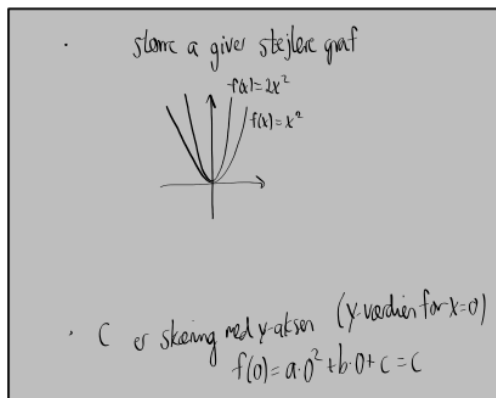 · større a giver stejlere graf
f(x)=2x²
f(x)=x²
· C er skæring med y-aksen (y-værdien for x=0)
f(0)=a·0²+b·0+c=c